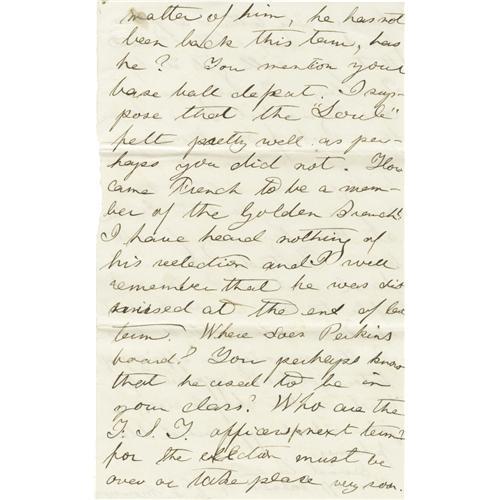 matter of him, he has not
been back this term, has
he? You mention your
base ball defeat. I sup-
pose that the "Soule"
felt pretty well as per-
haps you did not. How
came French to be a mem-
ber of the Golden Branch?
I have heard nothing of
his reelection and I well
remember that he was dis
missed at the end of last
term. Where does Perkins
board? You perhaps know
that he used to be in
your class? Who are the
officers next term?
for the election must be
over or take place very soon.